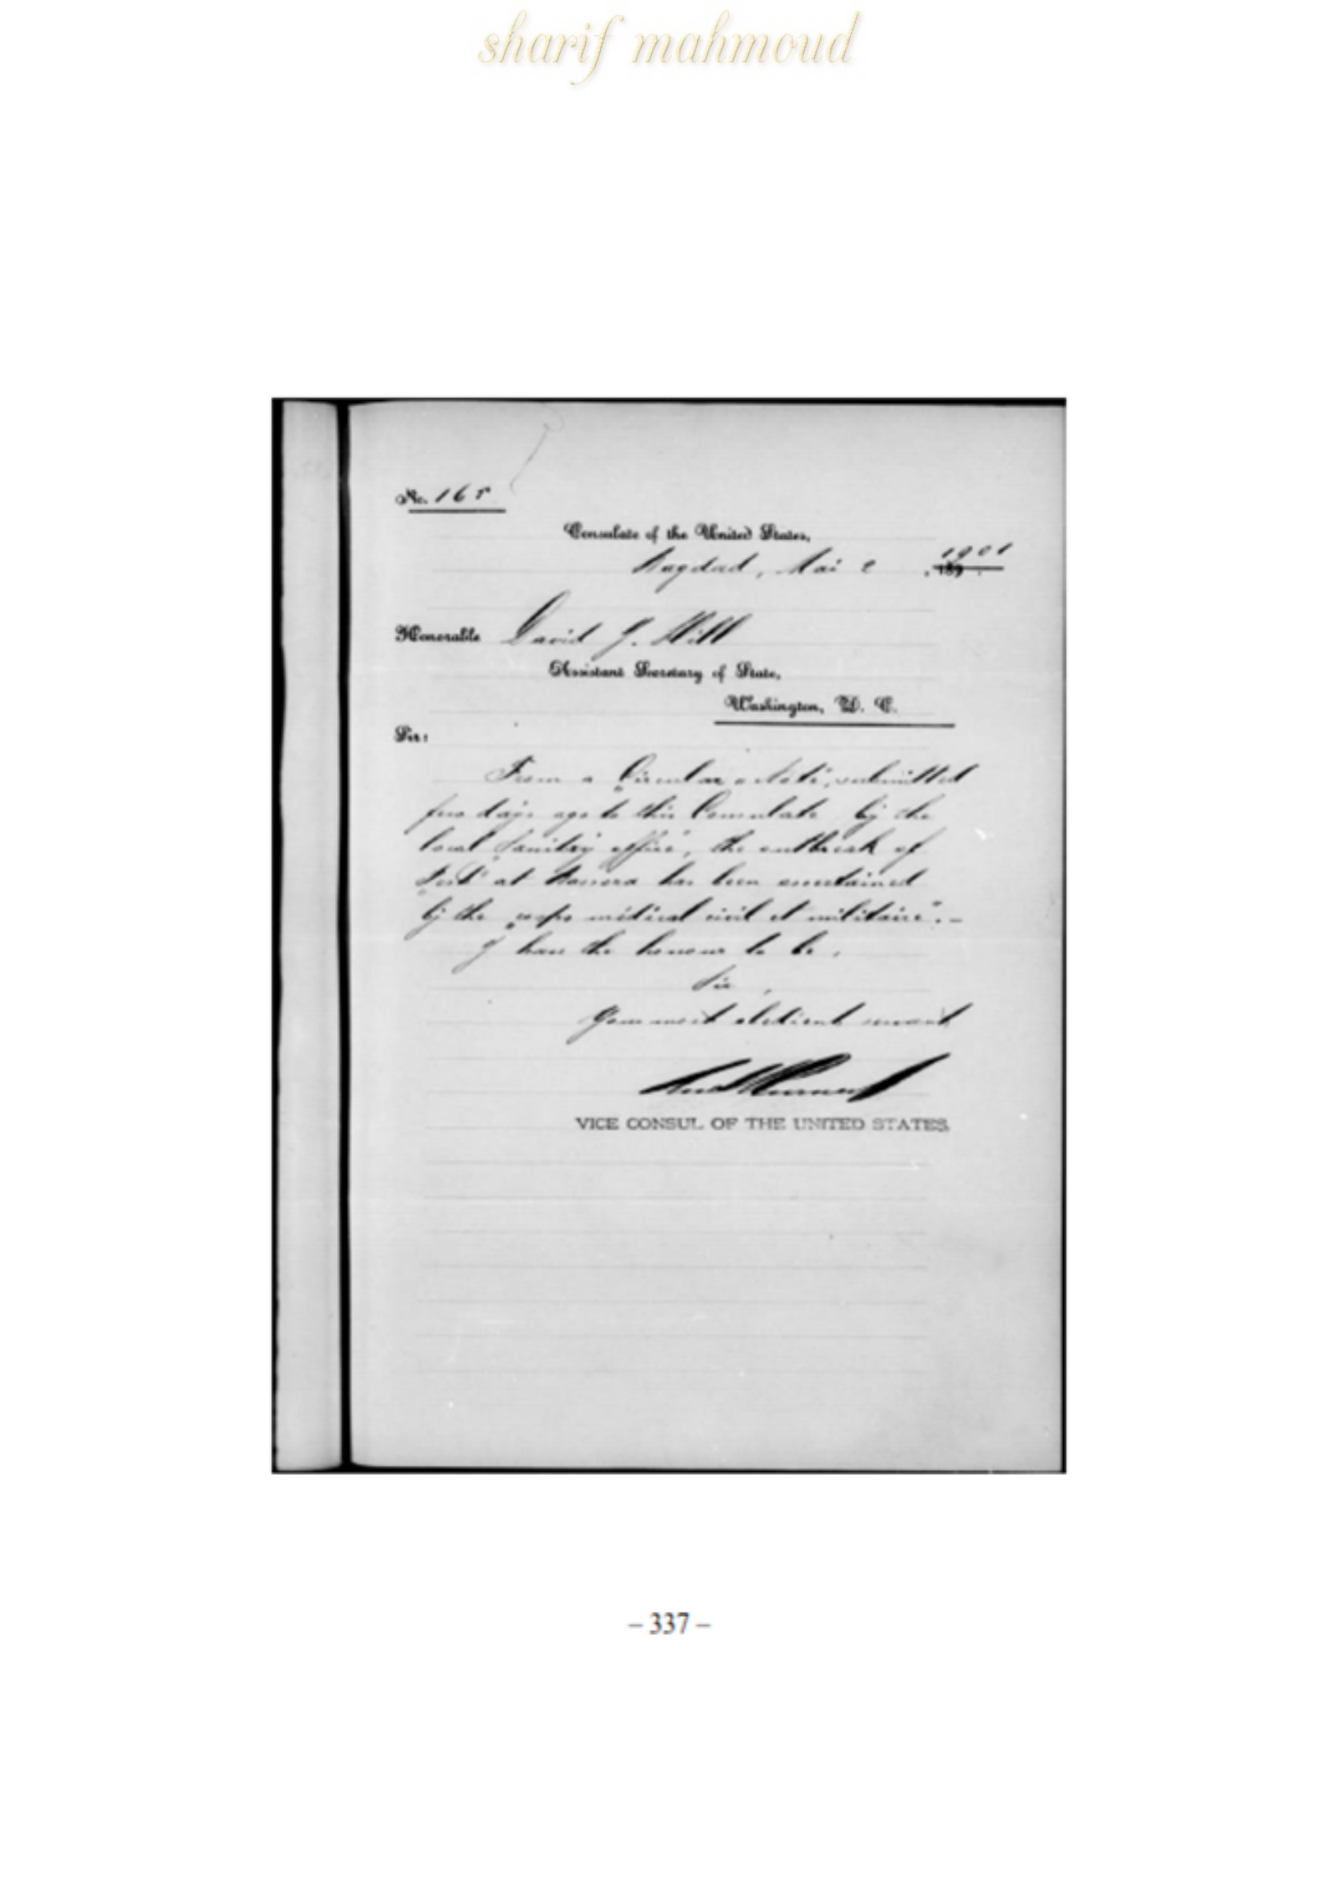 sharif mahmoud
No. 165
Consulate of the United States,
Bagdad, Mai 2, 189 1901
Honorable David J. Hill
Assistant Secretary of State,
Washington, D. C.
Sir:
From a „Circular Note", submitted
few days ago to this Consulate by the
local „Sanitary office", the outbreak of
„Pest" at Bassora has been ascertained
by the „corps médical civil et militaire".—
I have the honour to be,
Sir,
Your most obedient servant
VICE CONSUL OF THE UNITED STATES.
– 337 –